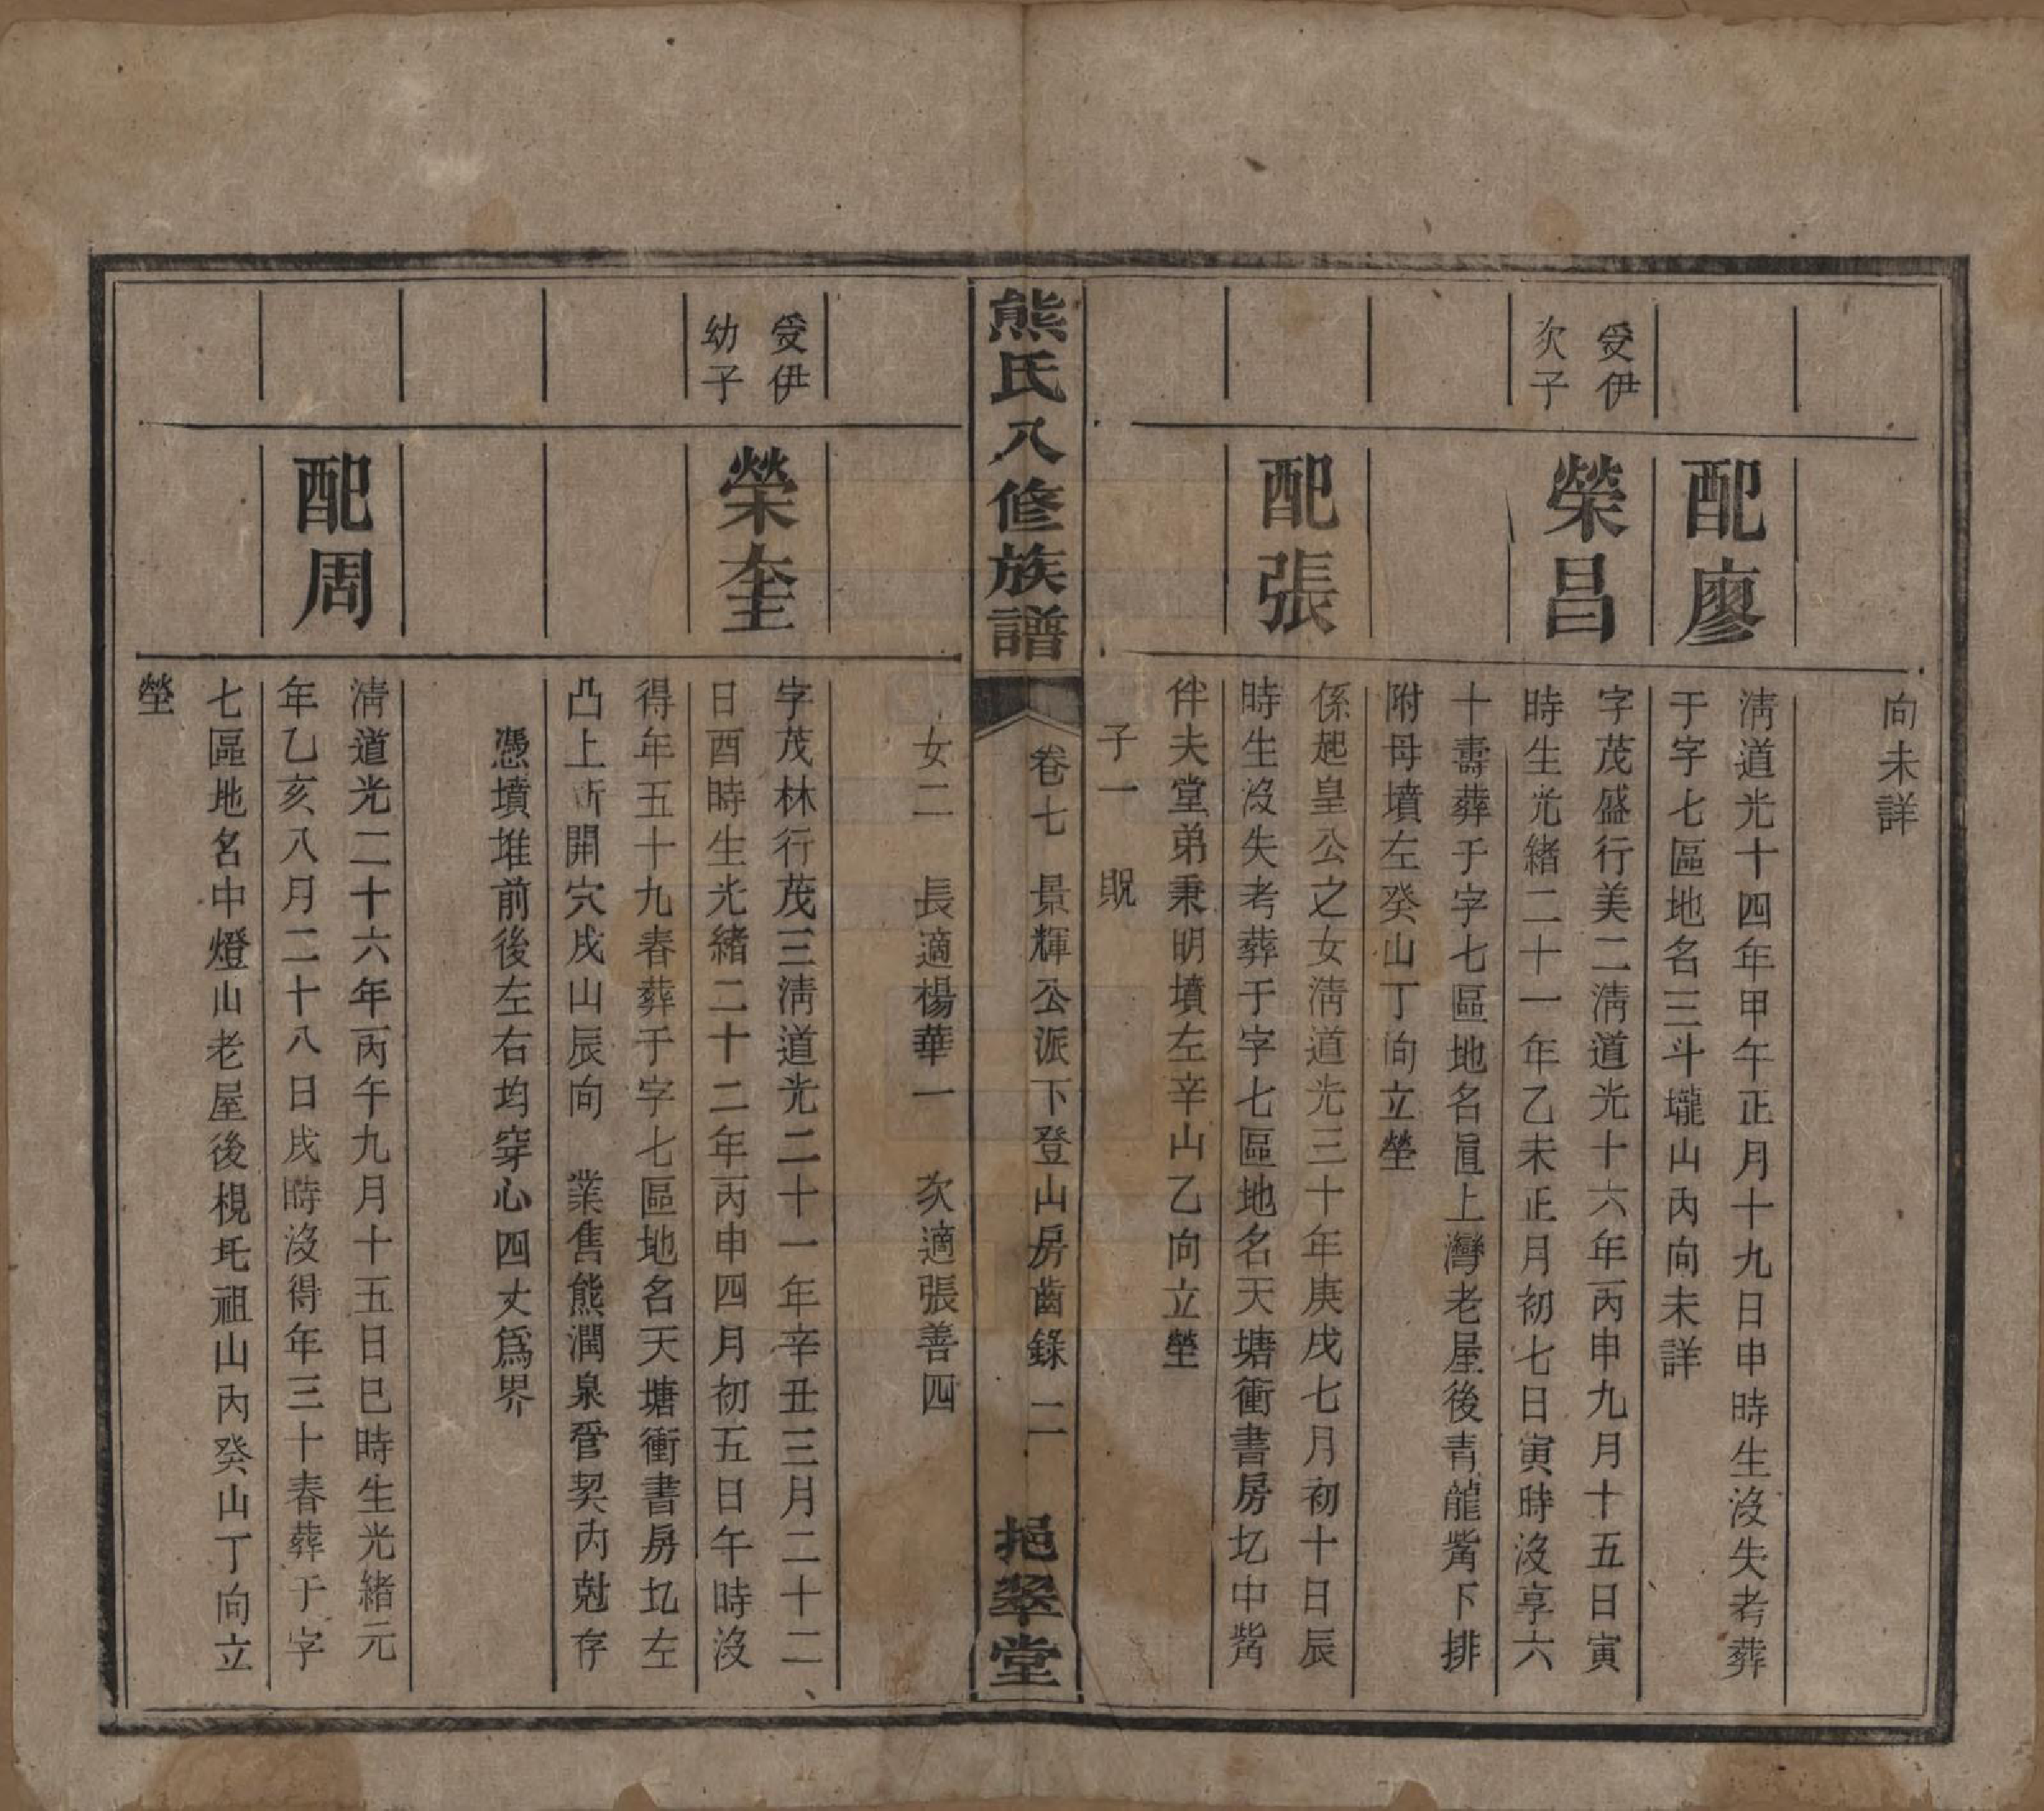 向未詳
配廖
淸道光十四年甲午正月十九日申時生沒失考葬
于字七區地名三斗壠山丙向未詳
受伊
次子
榮昌
字茂盛行美二淸道光十六年丙申九月十五日寅
時生光緒二十一年乙未正月初七日寅時沒享六
十壽葬于字七區地名眞上灣老屋後靑龍嘴下排
附母墳左癸山丁向立塋
配張
係起皇公之女淸道光三十年庚戌七月初十日辰
時生沒失考葬于字七區地名天塘衝書房圠中嘴
伴夫堂弟秉明墳左辛山乙向立塋
子一 貺
熊氏八修族譜
卷七 景輝公派下登山房齒錄 二
挹翠堂
女二 長適楊華一 次適張善四
受伊
幼子
榮奎
字茂林行茂三淸道光二十一年辛丑三月二十二
日酉時生光緒二十二年丙申四月初五日午時沒
得年五十九春葬于字七區地名天塘衝書房圠左
凸上新開穴戌山辰向 業售熊潤泉管契內尅存
憑墳堆前後左右均穿心四丈爲界
配周
淸道光二十六年丙午九月十五日巳時生光緒元
年乙亥八月二十八日戌時沒得年三十春葬于字
七區地名中燈山老屋後梘圫祖山內癸山丁向立
塋